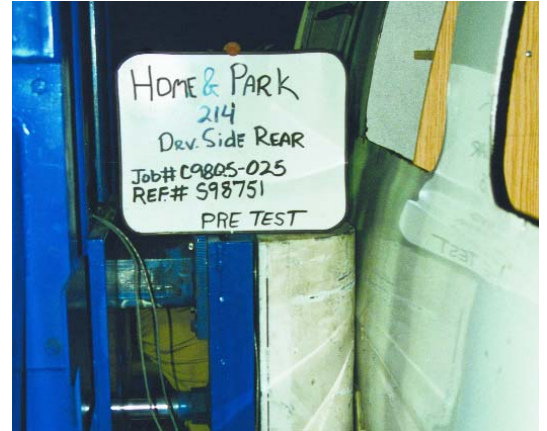 HOME & PARK
214
DRV. SIDE REAR
Job# C98Q5-025
REF.# S98751
PRE TEST
TEST